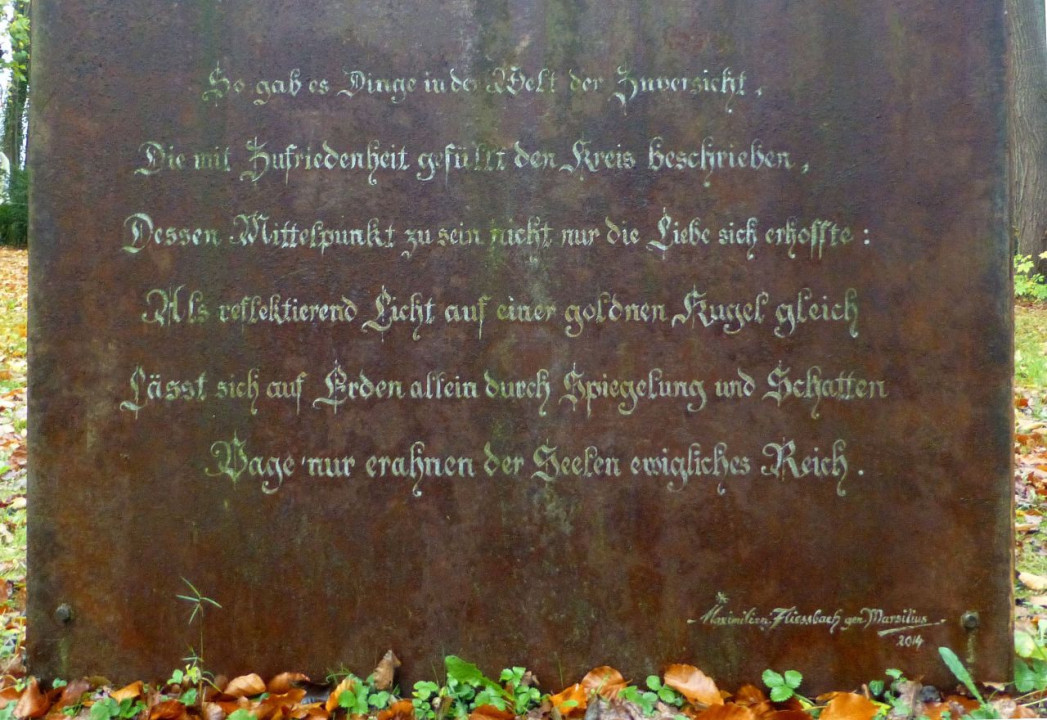 So gab es Dinge in der Welt der Zuversicht,
Die mit Zufriedenheit gefüllt den Kreis beschrieben,
Dessen Mittelpunkt zu sein nicht nur die Liebe sich erhoffte:
Als reflektierend Licht auf einer goldnen Kugel gleich
Lässt sich auf Erden allein durch Spiegelung und Schatten
Vage nur erahnen der Seelen ewigliches Reich.
Maximilian Fliessbach gen. Marsilius
2014